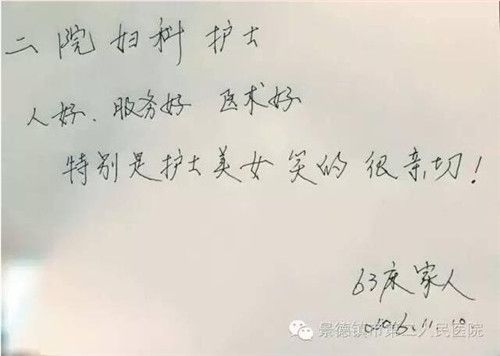 二院妇科护士
人好.服务好 医术好
特别是护士美女笑的很亲切!
63床家人
2016.11.10
景德镇市第二人民医院